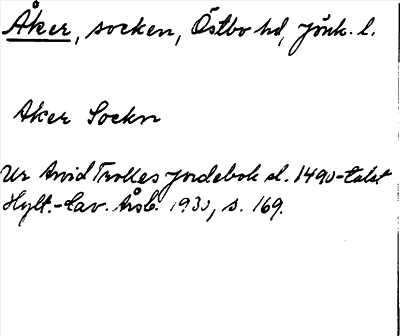 Åker, socken, Östbo hd, Jönk. l.
Aker Sockn
Ur Arvid Trolles jordebok sl. 1490-talet
Hylt.-Cav. Årsb. 1930, s. 169.